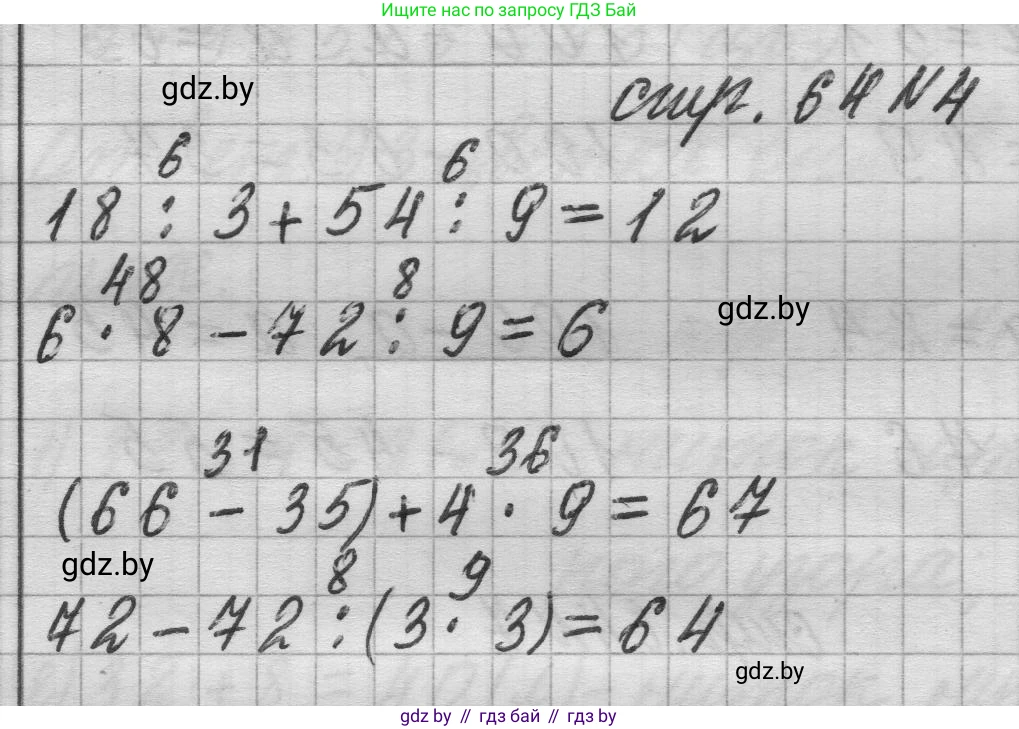 Ищите нас по запросу ГДЗ Бай
gdz.by
стр. 64 N4
6 6
18 : 3 + 54 : 9 = 12
48 8
6 · 8 - 72 : 9 = 6
gdz.by
31 36
(66 - 35) + 4 · 9 = 67
gdz.by
8 9
72 - 72 : (3 · 3) = 64
gdz.by
gdz by // гдз бай // гдз by